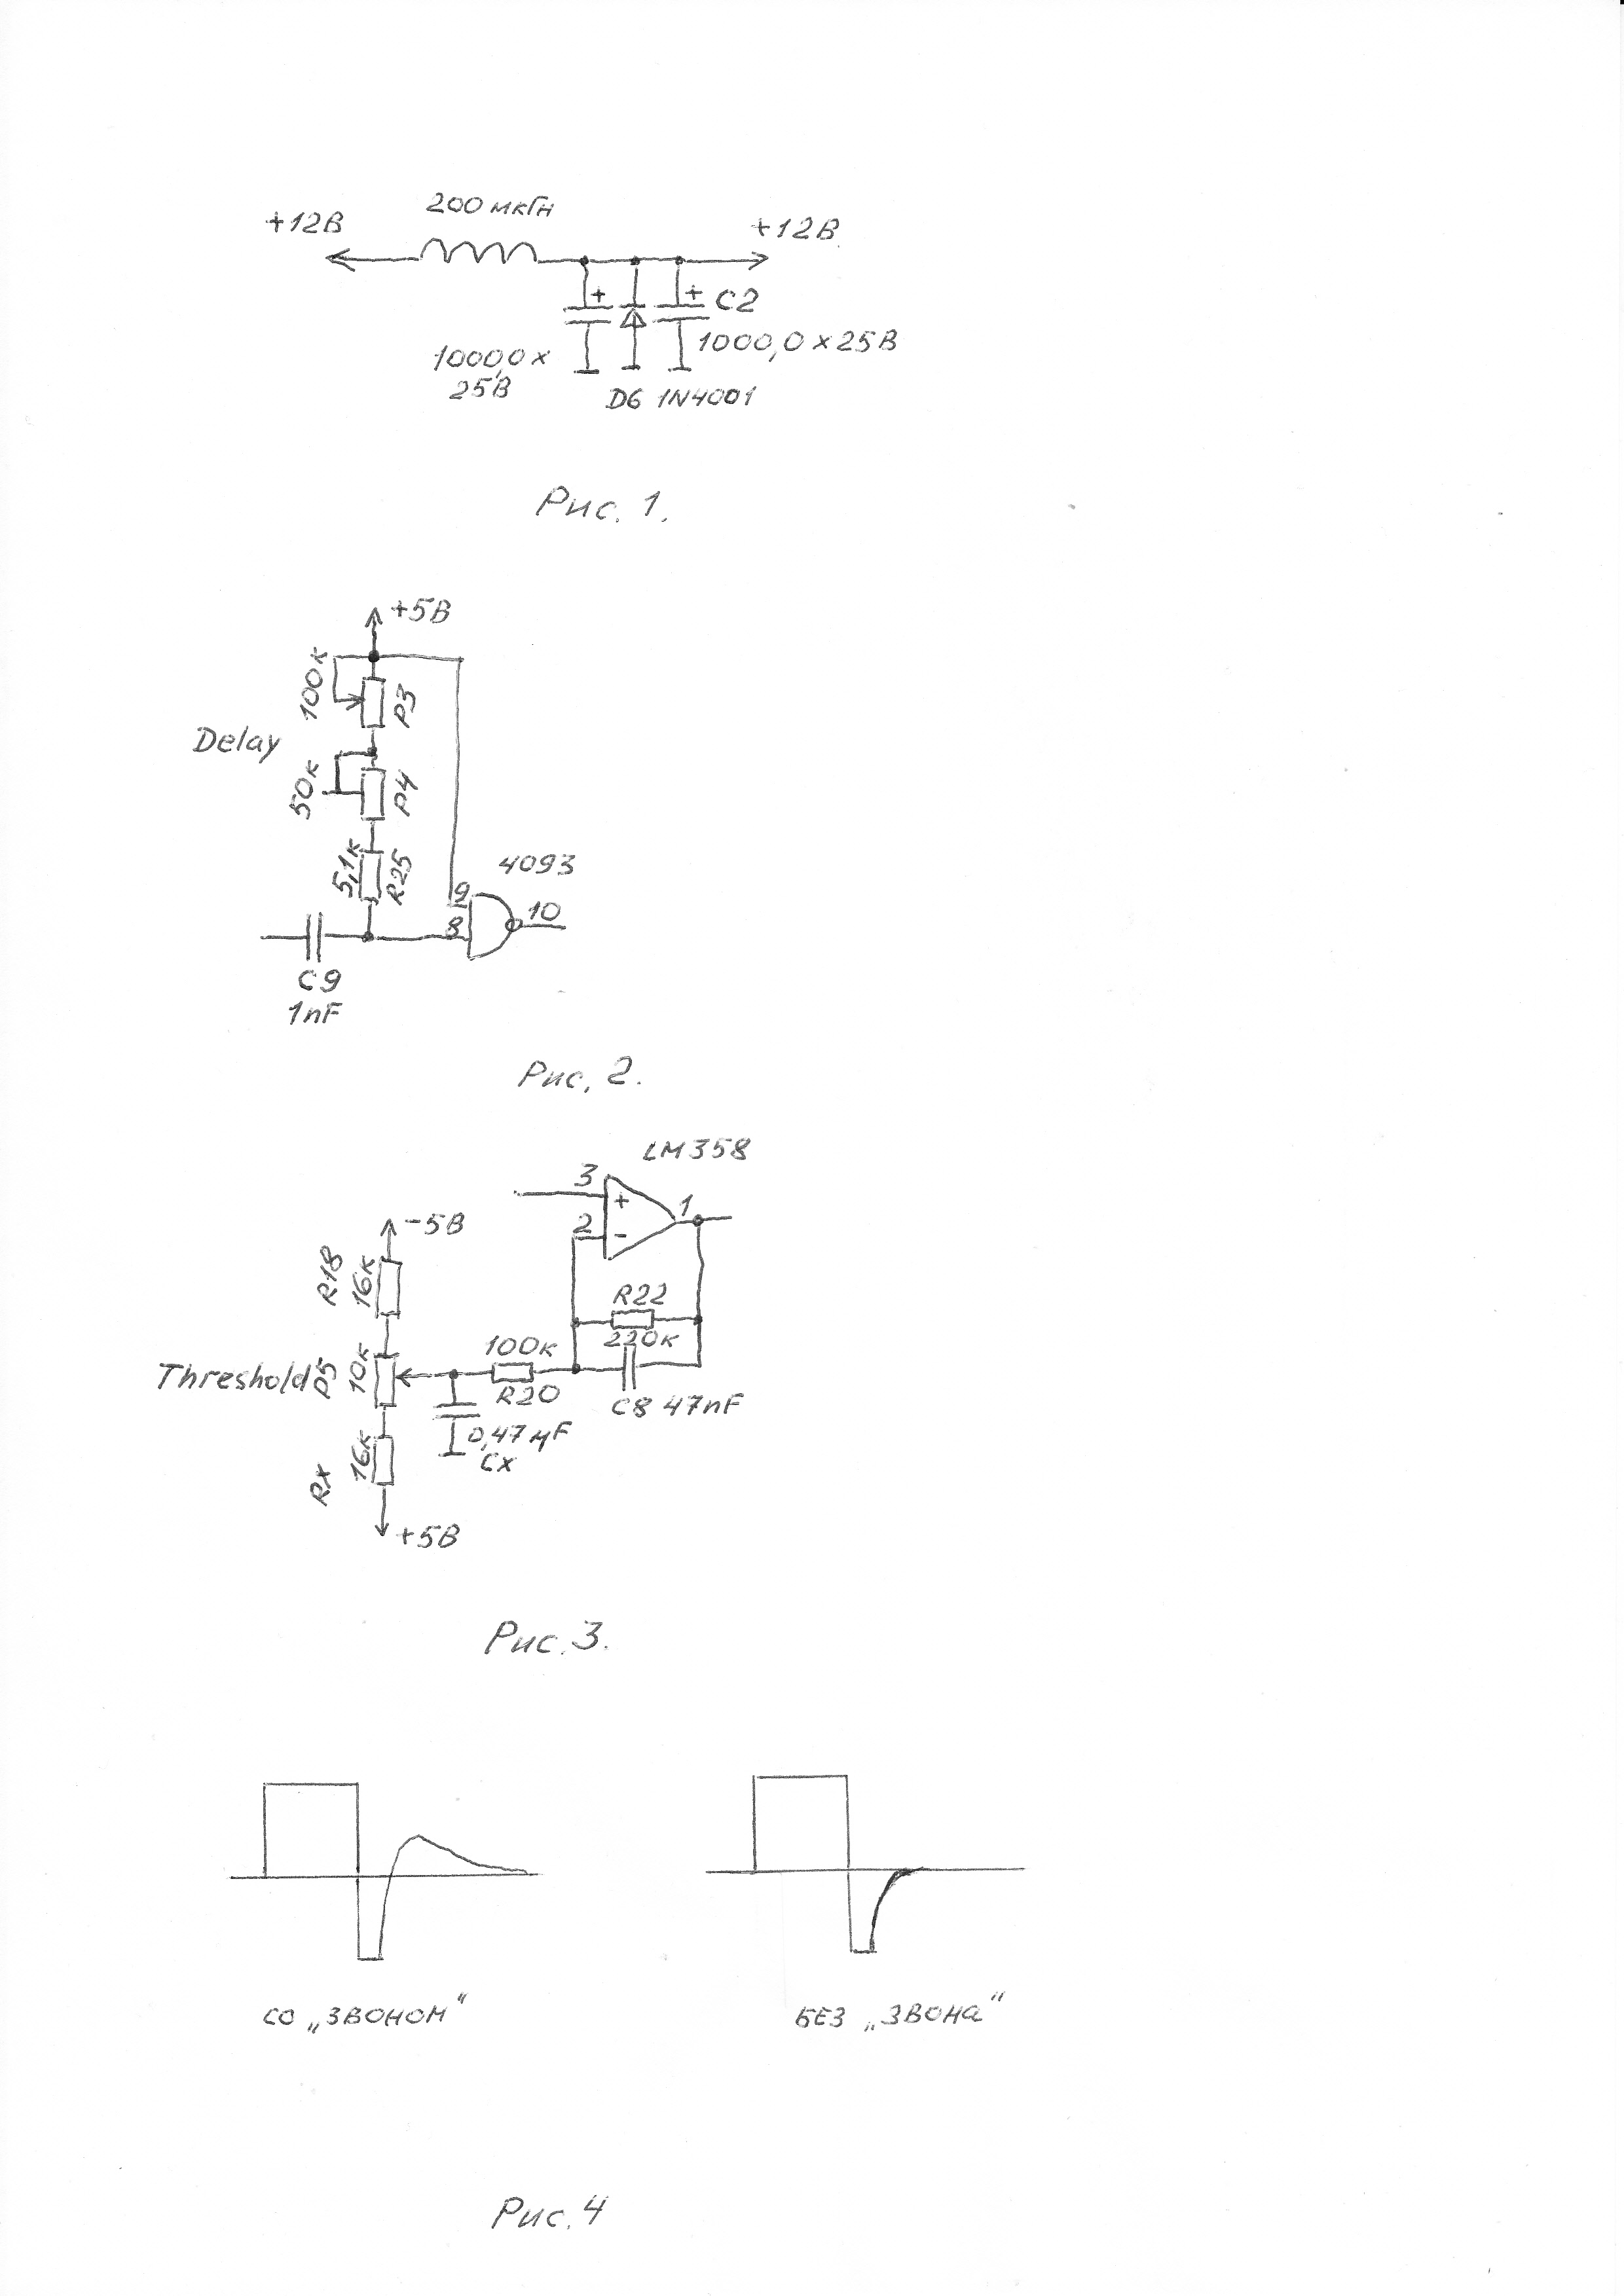 200 мкГн
+12В
+12В
+
+
C2
1000,0 x 25В
1000,0 x
25В
D6 1N4001
Рис. 1.
+5В
100к
P3
Delay
50к
P4
5,1к
R25
4093
9
8
10
C9
1nF
Рис. 2.
LM358
3
+
1
2
-
-5В
R18
16к
R22
220к
Threshold
P5
10к
100к
R20
C8 47nF
0,47 мF
Cx
Rx
16к
+5В
Рис. 3.
СО „ЗВОНОМ"
БЕЗ „ЗВОНа"
Рис. 4